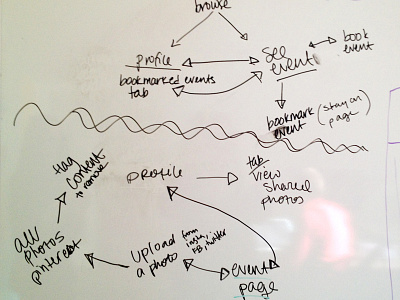 browse
profile
bookmarked events
tab
see
event
book
event
bookmark
event
(stay on
page)
flag
content
to remove
profile
tab
view
shared
photos
all
photos
pinterest
upload
a photo
from
insta,
FB, twitter
event
page